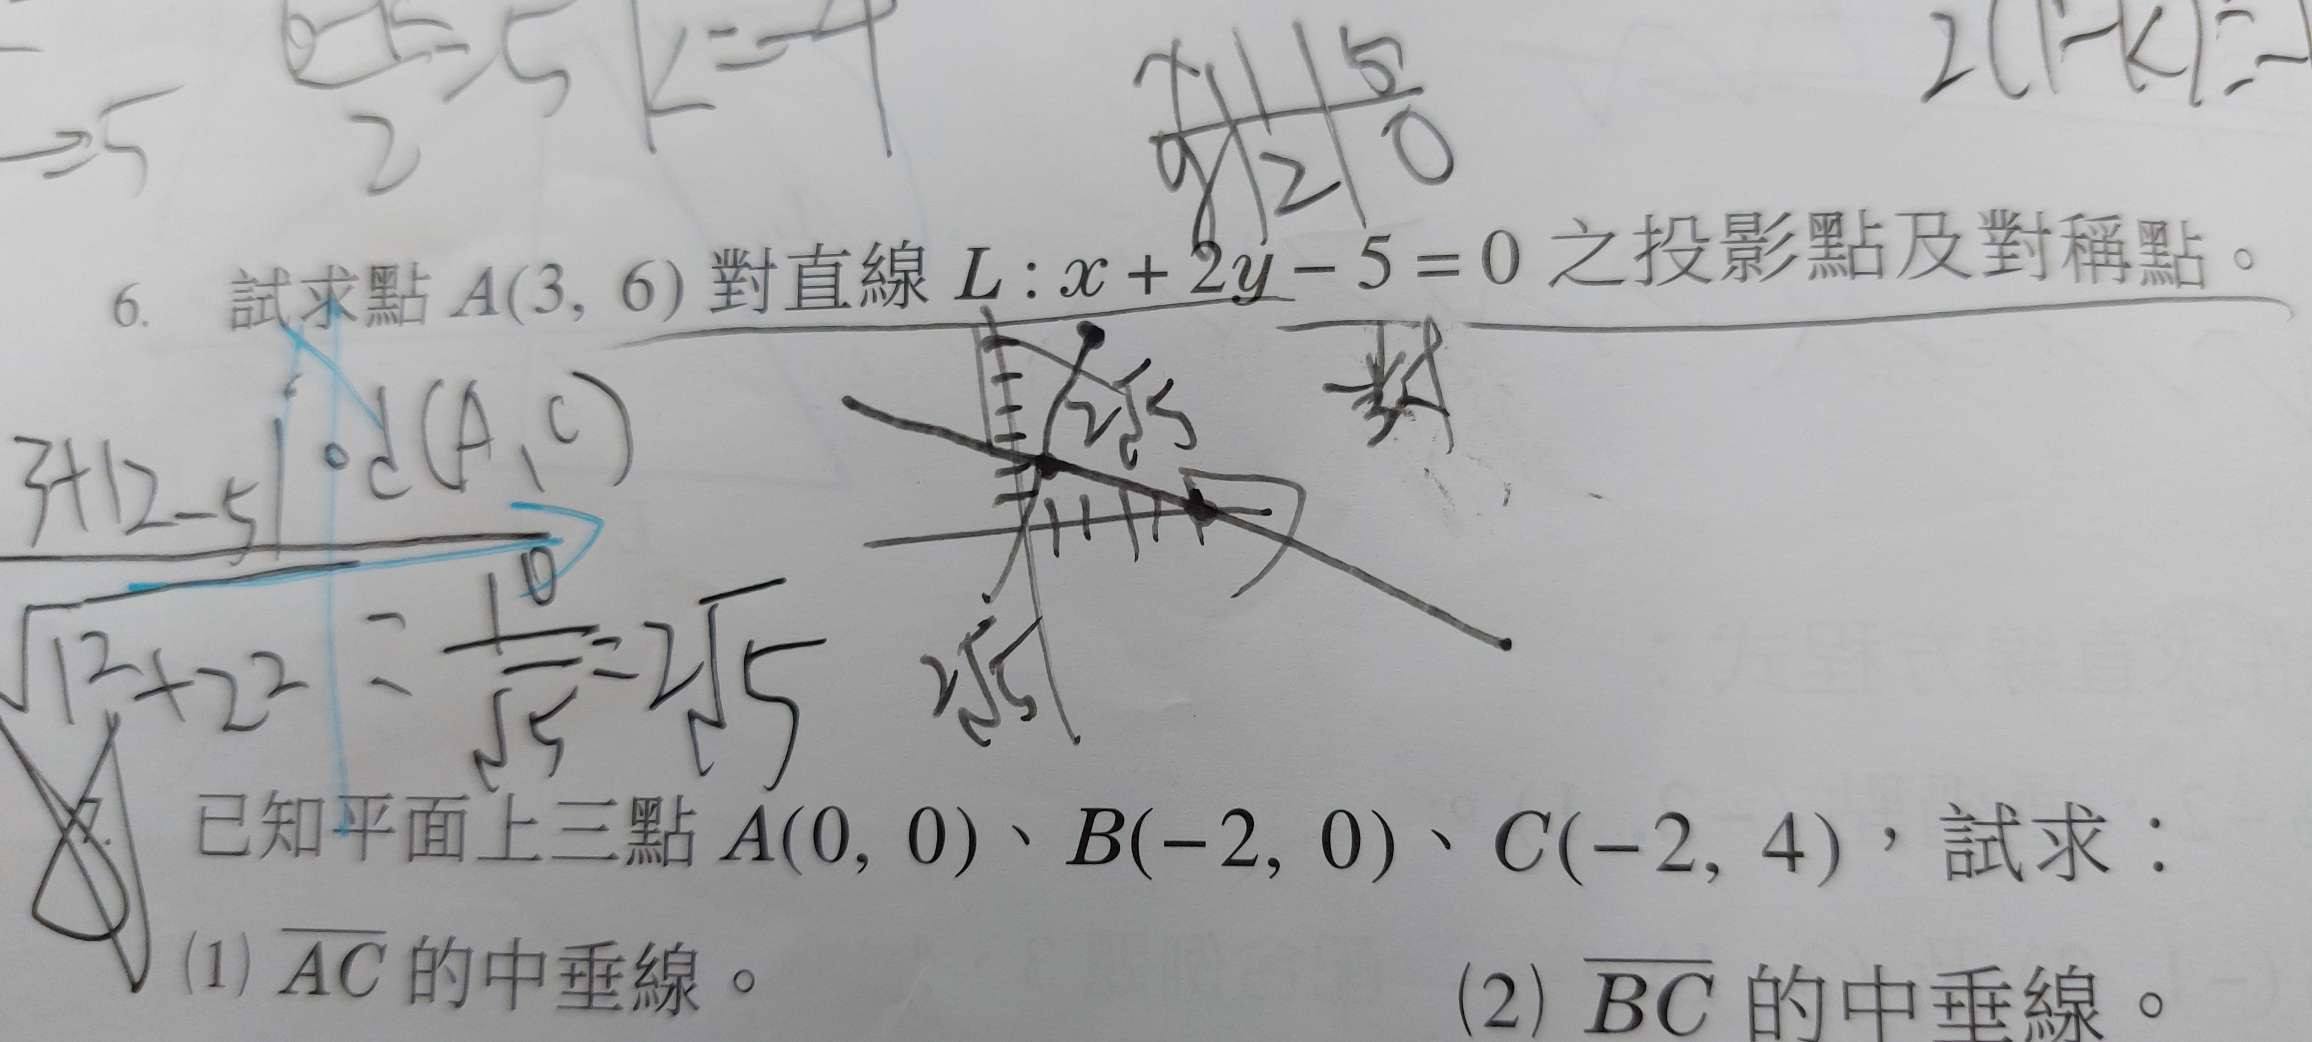 →5
2
5
k=-4
x | 1 | 5
y | 2 | 0
2(1-k)=-
6. 試求點 A(3, 6) 對直線 L : x + 2y − 5 = 0 之投影點及對稱點。
d(A, C)
3+12-5|
√1²+2² = 10/√5 = 2√5
2√5
2√5
已知平面上三點 A(0, 0)、B(−2, 0)、C(−2, 4),試求:
(1) \overline{AC} 的中垂線。 (2) \overline{BC} 的中垂線。